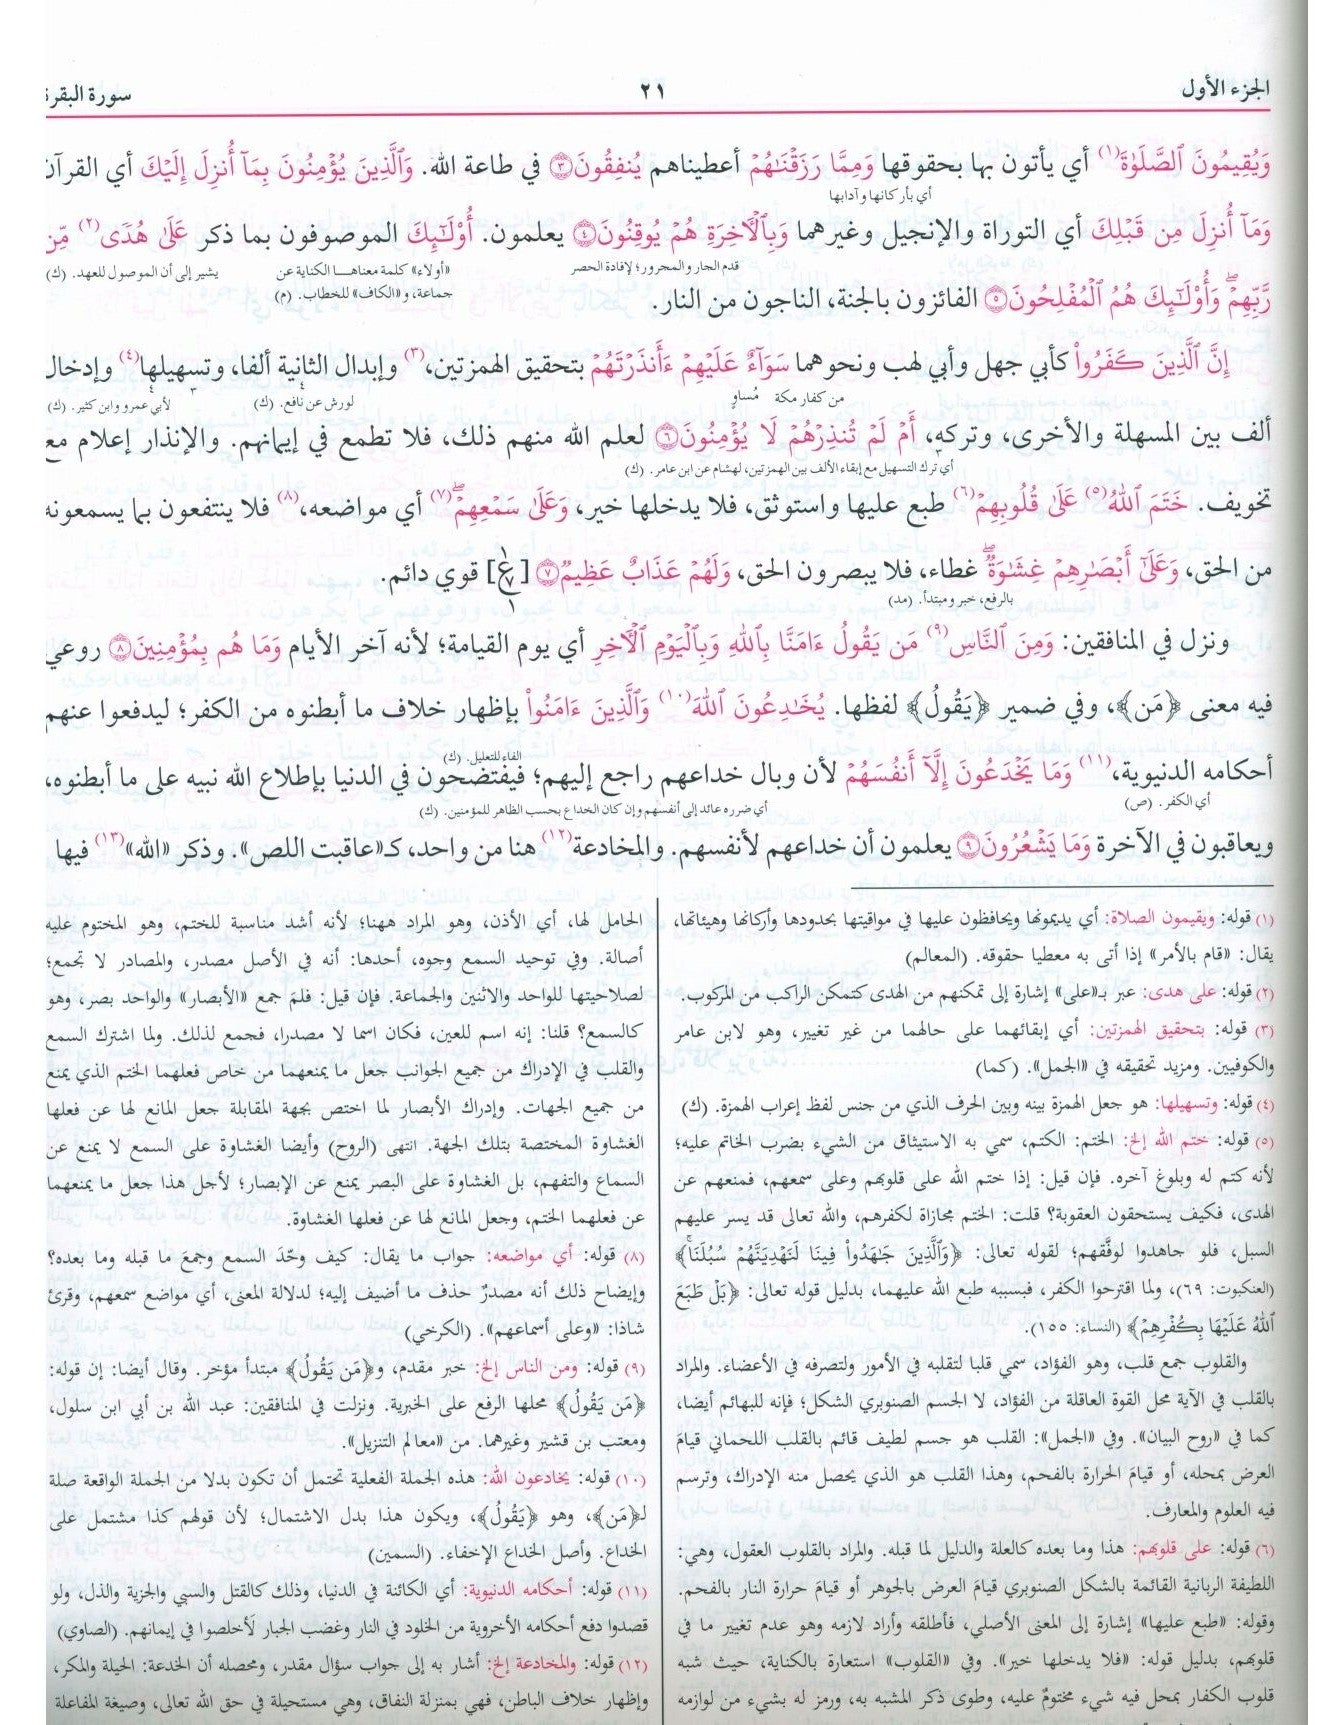 الجزء الأول
٢١
سورة البقرة
وَيُقِيمُونَ ٱلصَّلَوٰةَ(١) أي يأتون بها بحقوقها وَمِمَّا رَزَقْنَٰهُمْ أعطيناهم يُنفِقُونَ ٣ في طاعة الله. وَٱلَّذِينَ يُؤْمِنُونَ بِمَآ أُنزِلَ إِلَيْكَ أي القرآن
أي بأركانها وآدابها
وَمَآ أُنزِلَ مِن قَبْلِكَ أي التوراة والإنجيل وغيرهما وَبِٱلْأٓخِرَةِ هُمْ يُوقِنُونَ ٤ يعلمون. أُوْلَٰٓئِكَ الموصوفون بما ذكر عَلَىٰ هُدًى(٢) مِّن
قدم الجار والمجرور؛ لإفادة الحصر
«أولاء» كلمة معناها الكناية عن
جماعة، و«الكاف» للخطاب. (م)
يشير إلى أن الموصول للعهد. (ك)
رَّبِّهِمْۖ وَأُوْلَٰٓئِكَ هُمُ ٱلْمُفْلِحُونَ ٥ الفائزون بالجنة، الناجون من النار.
إِنَّ ٱلَّذِينَ كَفَرُواْ كأبي جهل وأبي لهب ونحوهما سَوَآءٌ عَلَيْهِمْ ءَأَنذَرْتَهُمْ بتحقيق الهمزتين،(٣) وإبدال الثانية ألفا، وتسهيلها(٤) وإدخال
من كفار مكة
مُساوٍ
لورش عن نافع. (ك)
لأبي عمرو وابن كثير. (ك)
ألف بين المسهلة والأخرى، وتركه، أَمْ لَمْ تُنذِرْهُمْ لَا يُؤْمِنُونَ ٦ لعلم الله منهم ذلك، فلا تطمع في إيمانهم. والإنذار إعلام مع
أي ترك التسهيل مع إبقاء الألف بين الهمزتين، لهشام عن ابن عامر. (ك)
تخويف. خَتَمَ ٱللَّهُ(٥) عَلَىٰ قُلُوبِهِمْ(٦) طبع عليها واستوثق، فلا يدخلها خير، وَعَلَىٰ سَمْعِهِمْۖ(٧) أي مواضعه،(٨) فلا ينتفعون بما يسمعونه
من الحق، وَعَلَىٰٓ أَبْصَٰرِهِمْ غِشَٰوَةٌۖ غطاء، فلا يبصرون الحق، وَلَهُمْ عَذَابٌ عَظِيمٌ ٧ [ع] قوي دائم.
بالرفع، خبر ومبتدأ. (مد)
ونزل في المنافقين: وَمِنَ ٱلنَّاسِ(٩) مَن يَقُولُ ءَامَنَّا بِٱللَّهِ وَبِٱلْيَوْمِ ٱلْأٓخِرِ أي يوم القيامة؛ لأنه آخر الأيام وَمَا هُم بِمُؤْمِنِينَ ٨ روعي
فيه معنى ﴿مَن﴾، وفي ضمير ﴿يَقُولُ﴾ لفظها. يُخَٰدِعُونَ ٱللَّهَ(١٠) وَٱلَّذِينَ ءَامَنُواْ بإظهار خلاف ما أبطنوه من الكفر؛ ليدفعوا عنهم
الفاء للتعليل. (ك)
أحكامه الدنيوية،(١١) وَمَا يَخْدَعُونَ إِلَّآ أَنفُسَهُمْ لأن وبال خداعهم راجع إليهم؛ فيفتضحون في الدنيا بإطلاع الله نبيه على ما أبطنوه،
أي الكفر. (ص)
أي ضرره عائد إلى أنفسهم وإن كان الخداع بحسب الظاهر للمؤمنين. (ك)
ويعاقبون في الآخرة وَمَا يَشْعُرُونَ ٩ يعلمون أن خداعهم لأنفسهم. والمخادعة(١٢) هنا من واحد، كـ«عاقبت اللص». وذكر «الله»(١٣) فيها
(١) قوله: ويقيمون الصلاة: أي يديمونها ويحافظون عليها في مواقيتها بحدودها وأركانها وهيئاتها،
يقال: «قام بالأمر» إذا أتى به معطيا حقوقه. (المعالم)
(٢) قوله: على هدى: عبر بـ«على» إشارة إلى تمكنهم من الهدى كتمكن الراكب من المركوب.
(٣) قوله: بتحقيق الهمزتين: أي إبقائهما على حالهما من غير تغيير، وهو لابن عامر
والكوفيين. ومزيد تحقيقه في «الجمل». (كما)
(٤) قوله: وتسهيلها: هو جعل الهمزة بينه وبين الحرف الذي من جنس لفظ إعراب الهمزة. (ك)
(٥) قوله: ختم الله إلخ: الختم: الكتم، سمي به الاستيثاق من الشيء بضرب الخاتم عليه؛
لأنه كتم له وبلوغ آخره. فإن قيل: إذا ختم الله على قلوبهم وعلى سمعهم، فمنعهم عن
الهدى، فكيف يستحقون العقوبة؟ قلت: الختم مجازاة لكفرهم، والله تعالى قد يسر عليهم
السبل، فلو جاهدوا لوفَّقهم؛ لقوله تعالى: ﴿وَٱلَّذِينَ جَٰهَدُواْ فِينَا لَنَهْدِيَنَّهُمْ سُبُلَنَاۚ﴾
(العنكبوت: ٦٩)، ولما اقترحوا الكفر، فبسببه طبع الله عليهما، بدليل قوله تعالى: ﴿بَلْ طَبَعَ
ٱللَّهُ عَلَيْهَا بِكُفْرِهِمْ﴾ (النساء: ١٥٥).
والقلوب جمع قلب، وهو الفؤاد، سمي قلبا لتقلبه في الأمور ولتصرفه في الأعضاء. والمراد
بالقلب في الآية محل القوة العاقلة من الفؤاد، لا الجسم الصنوبري الشكل؛ فإنه للبهائم أيضا،
كما في «روح البيان». وفي «الجمل»: القلب هو جسم لطيف قائم بالقلب اللحماني قيامَ
العرض بمحله، أو قيامَ الحرارة بالفحم، وهذا القلب هو الذي يحصل منه الإدراك، وترسم
فيه العلوم والمعارف.
(٦) قوله: على قلوبهم: هذا وما بعده كالعلة والدليل لما قبله. والمراد بالقلوب العقول، وهي:
اللطيفة الربانية القائمة بالشكل الصنوبري قيامَ العرض بالجوهر أو قيامَ حرارة النار بالفحم.
وقوله: «طبع عليها» إشارة إلى المعنى الأصلي، فأطلقه وأراد لازمه وهو عدم تغيير ما في
قلوبهم، بدليل قوله: «فلا يدخلها خير». وفي «القلوب» استعارة بالكناية، حيث شبه
قلوب الكفار بمحل فيه شيء مختومٌ عليه، وطوى ذكر المشبه به، ورمز له بشيء من لوازمه
الحامل لها، أي الأذن، وهو المراد ههنا؛ لأنه أشد مناسبة للختم، وهو المختوم عليه
أصالة. وفي توحيد السمع وجوه، أحدها: أنه في الأصل مصدر، والمصادر لا تجمع؛
لصلاحيتها للواحد والاثنين والجماعة. فإن قيل: فلمَ جمع «الأبصار» والواحد بصر، وهو
كالسمع؟ قلنا: إنه اسم للعين، فكان اسما لا مصدرا، فجمع لذلك. ولما اشترك السمع
والقلب في الإدراك من جميع الجوانب جعل ما يمنعهما من خاص فعلهما الختم الذي يمنع
من جميع الجهات. وإدراك الأبصار لما اختص بجهة المقابلة جعل المانع لها عن فعلها
الغشاوة المختصة بتلك الجهة. انتهى (الروح) وأيضا الغشاوة على السمع لا يمنع عن
السماع والتفهم، بل الغشاوة على البصر يمنع عن الإبصار؛ لأجل هذا جعل ما يمنعهما
عن فعلهما الختم، وجعل المانع لها عن فعلها الغشاوة.
(٨) قوله: أي مواضعه: جواب ما يقال: كيف وحّدَ السمع وجمعَ ما قبله وما بعده؟
وإيضاح ذلك أنه مصدرٌ حذف ما أضيف إليه؛ لدلالة المعنى، أي مواضع سمعهم، وقرئ
شاذا: «وعلى أسماعهم». (الكرخي)
(٩) قوله: ومن الناس إلخ: خبر مقدم، و﴿مَن يَقُولُ﴾ مبتدأ مؤخر. وقال أيضا: إن قوله:
﴿مَن يَقُولُ﴾ محلها الرفع على الخبرية. ونزلت في المنافقين: عبد الله بن أبي ابن سلول،
ومعتب بن قشير وغيرهما. من «معالم التنزيل».
(١٠) قوله: يخادعون الله: هذه الجملة الفعلية تحتمل أن تكون بدلا من الجملة الواقعة صلة
لـ﴿مَن﴾، وهو ﴿يَقُولُ﴾، ويكون هذا بدل الاشتمال؛ لأن قولهم كذا مشتمل على
الخداع. وأصل الخداع الإخفاء. (السمين)
(١١) قوله: أحكامه الدنيوية: أي الكائنة في الدنيا، وذلك كالقتل والسبي والجزية والذل، ولو
قصدوا دفع أحكامه الأخروية من الخلود في النار وغضب الجبار لَأخلصوا في إيمانهم. (الصاوي)
(١٢) قوله: والمخادعة إلخ: أشار به إلى جواب سؤال مقدر، ومحصله أن الخدعة: الحيلة والمكر،
وإظهار خلاف الباطن، فهي بمنزلة النفاق، وهي مستحيلة في حق الله تعالى، وصيغة المفاعلة